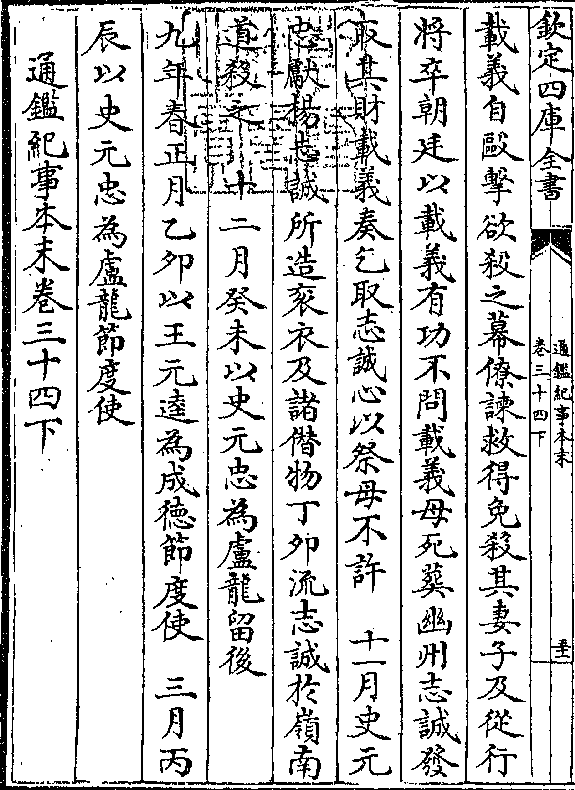 欽定四庫全書
通鑑紀事本末
卷三十四下
載義自毆擊欲殺之幕僚諫救得免殺其妻子及從行
將卒朝廷以載義有功不問載義母死葬幽州志誠發
取其財載義奏乞取志誠心以祭母不許　十一月史元
忠獻楊志誠所造衮衣及諸僭物丁卯流志誠於嶺南
道殺之　十二月癸未以史元忠為盧龍留後
九年春正月乙卯以王元逵為成德節度使　三月丙
辰以史元忠為盧龍節度使
通鑑紀事本末卷三十四下